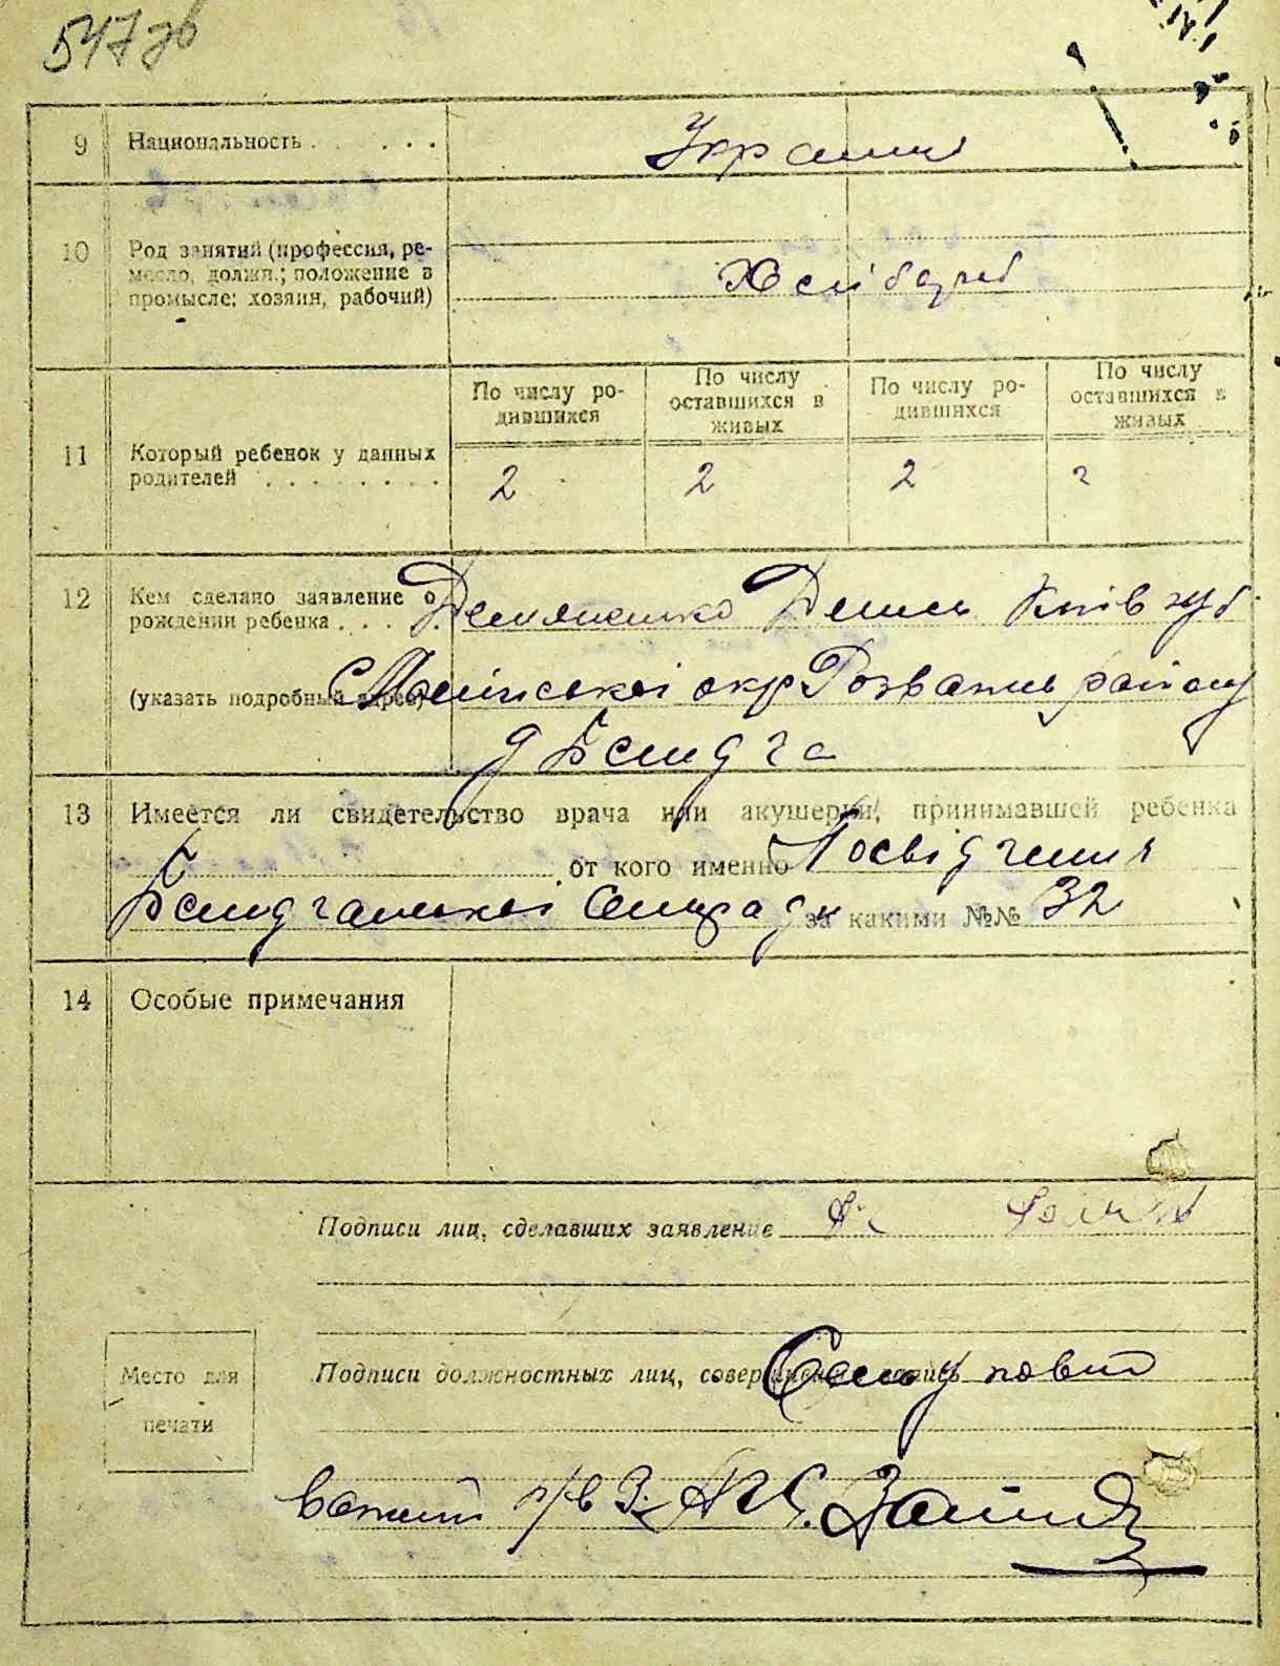 547 зв
9 Национальность . . . . .
Украинці
10 Род занятий (профессия, ре-
месло, должн.; положение в
промысле; хозяин, рабочий)
Хлібороб
11 Который ребенок у данных
родителей . . . . . . . .
По числу ро-
дившихся
По числу
оставшихся в
живых
По числу ро-
дившихся
По числу
оставшихся в
живых
2 2 2 2
12 Кем сделано заявление о
рождении ребенка . . .
Київ губ
(указать подробный адрес)
окр Розважів району
13 Имеется ли свидетельство врача или акушерки, принимавшей ребенка
от кого именно Посвідчення
Сельради за какими №№ 32
14 Особые примечания
Подписи лиц, сделавших заявление
Место для
печати
Подписи должностных лиц, совершивших запись